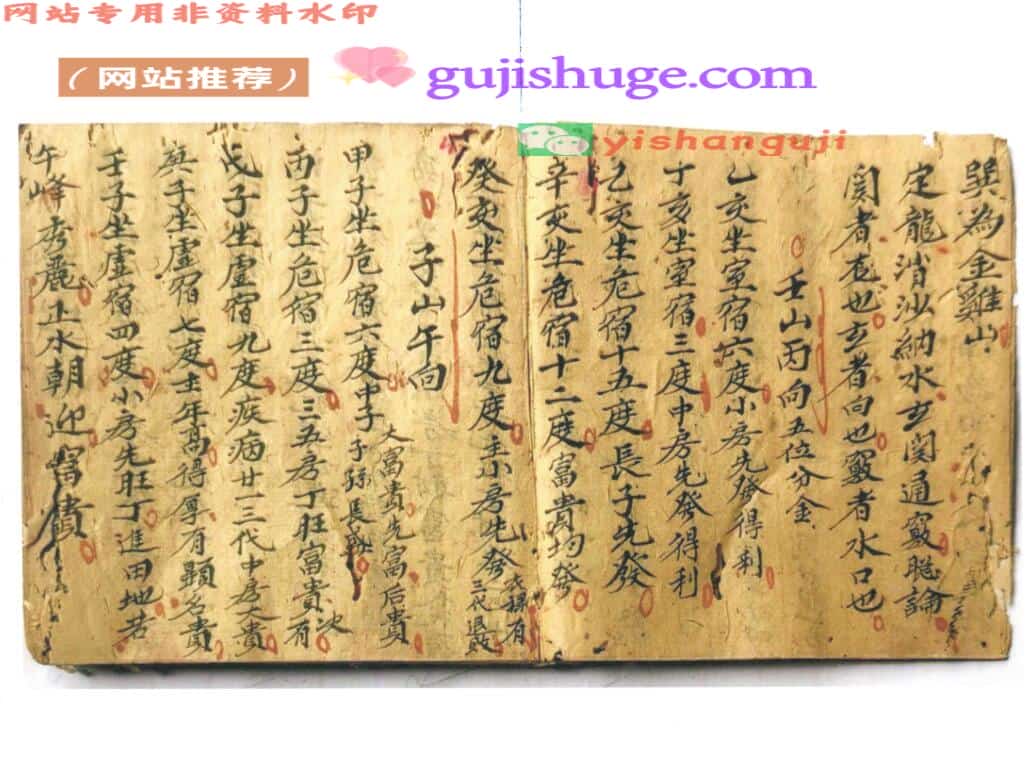 网站专用非资料水印
（网站推荐）
gujishuge.com
yishanguji
巽為金雞山
定龍消沙納水玄関通竅聡論
関者也玄者向也竅者水口也
壬山丙向五位分金
乙亥坐室宿六度小房先發得利
丁亥坐室宿三度中房先發得利
乙亥坐危宿十五度長子先發
辛亥坐危宿十二度富貴均發
癸亥坐危宿九度主小房先發
有
三代退敗
子山午向
甲子坐危宿六度中子
大富貴先富后貴
子孫長
丙子坐危宿三度三五房丁旺富貴
有
戊子坐虚宿九度疾病廿三代中房大貴
庚子坐虚宿七度主年高得厚有顕名貴
壬子坐虚宿四度小房先旺丁進田地若
午峰秀麗上水朝迎富貴